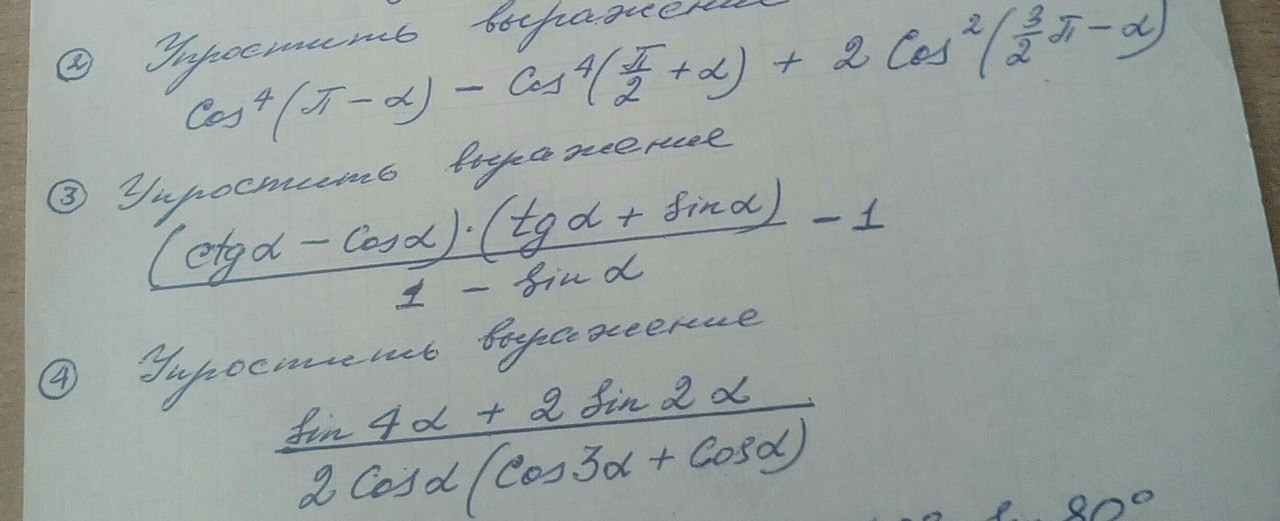 ② Упростить выражение
Cos⁴(π − α) − Cos⁴(π/2 + α) + 2 Cos²(3/2 π − α)
③ Упростить выражение
(ctg α − Cos α) · (tg α + Sin α) / 1 − Sin α − 1
④ Упростить выражение
Sin 4α + 2 Sin 2α
2 Cos α (Cos 3α + Cos α)
80°